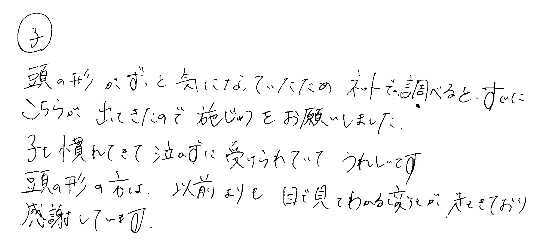 子
頭の形がずっと気になっていたため ネットで調べると、すぐに
こちらが出てきたので施じゅつをお願いしました。
子も慣れてきて泣かずに受けられていて うれしいです
頭の形の方は、以前よりも目で見てわかる変化が起きており
感謝しています。